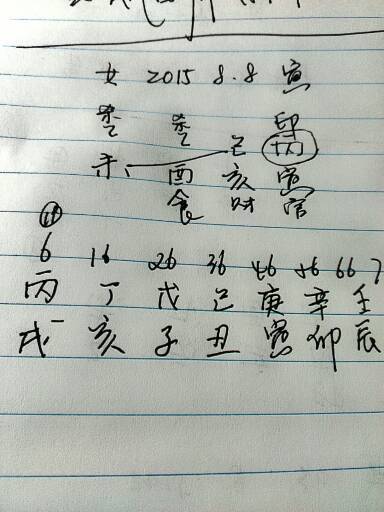 女 2015 8.8 寅
杀 杀 印
乙 乙 己 丙
未 酉 亥 寅
食 财 官
6 16 26 36 46 56 66 7
丙 丁 戊 己 庚 辛 壬
戌 亥 子 丑 寅 卯 辰